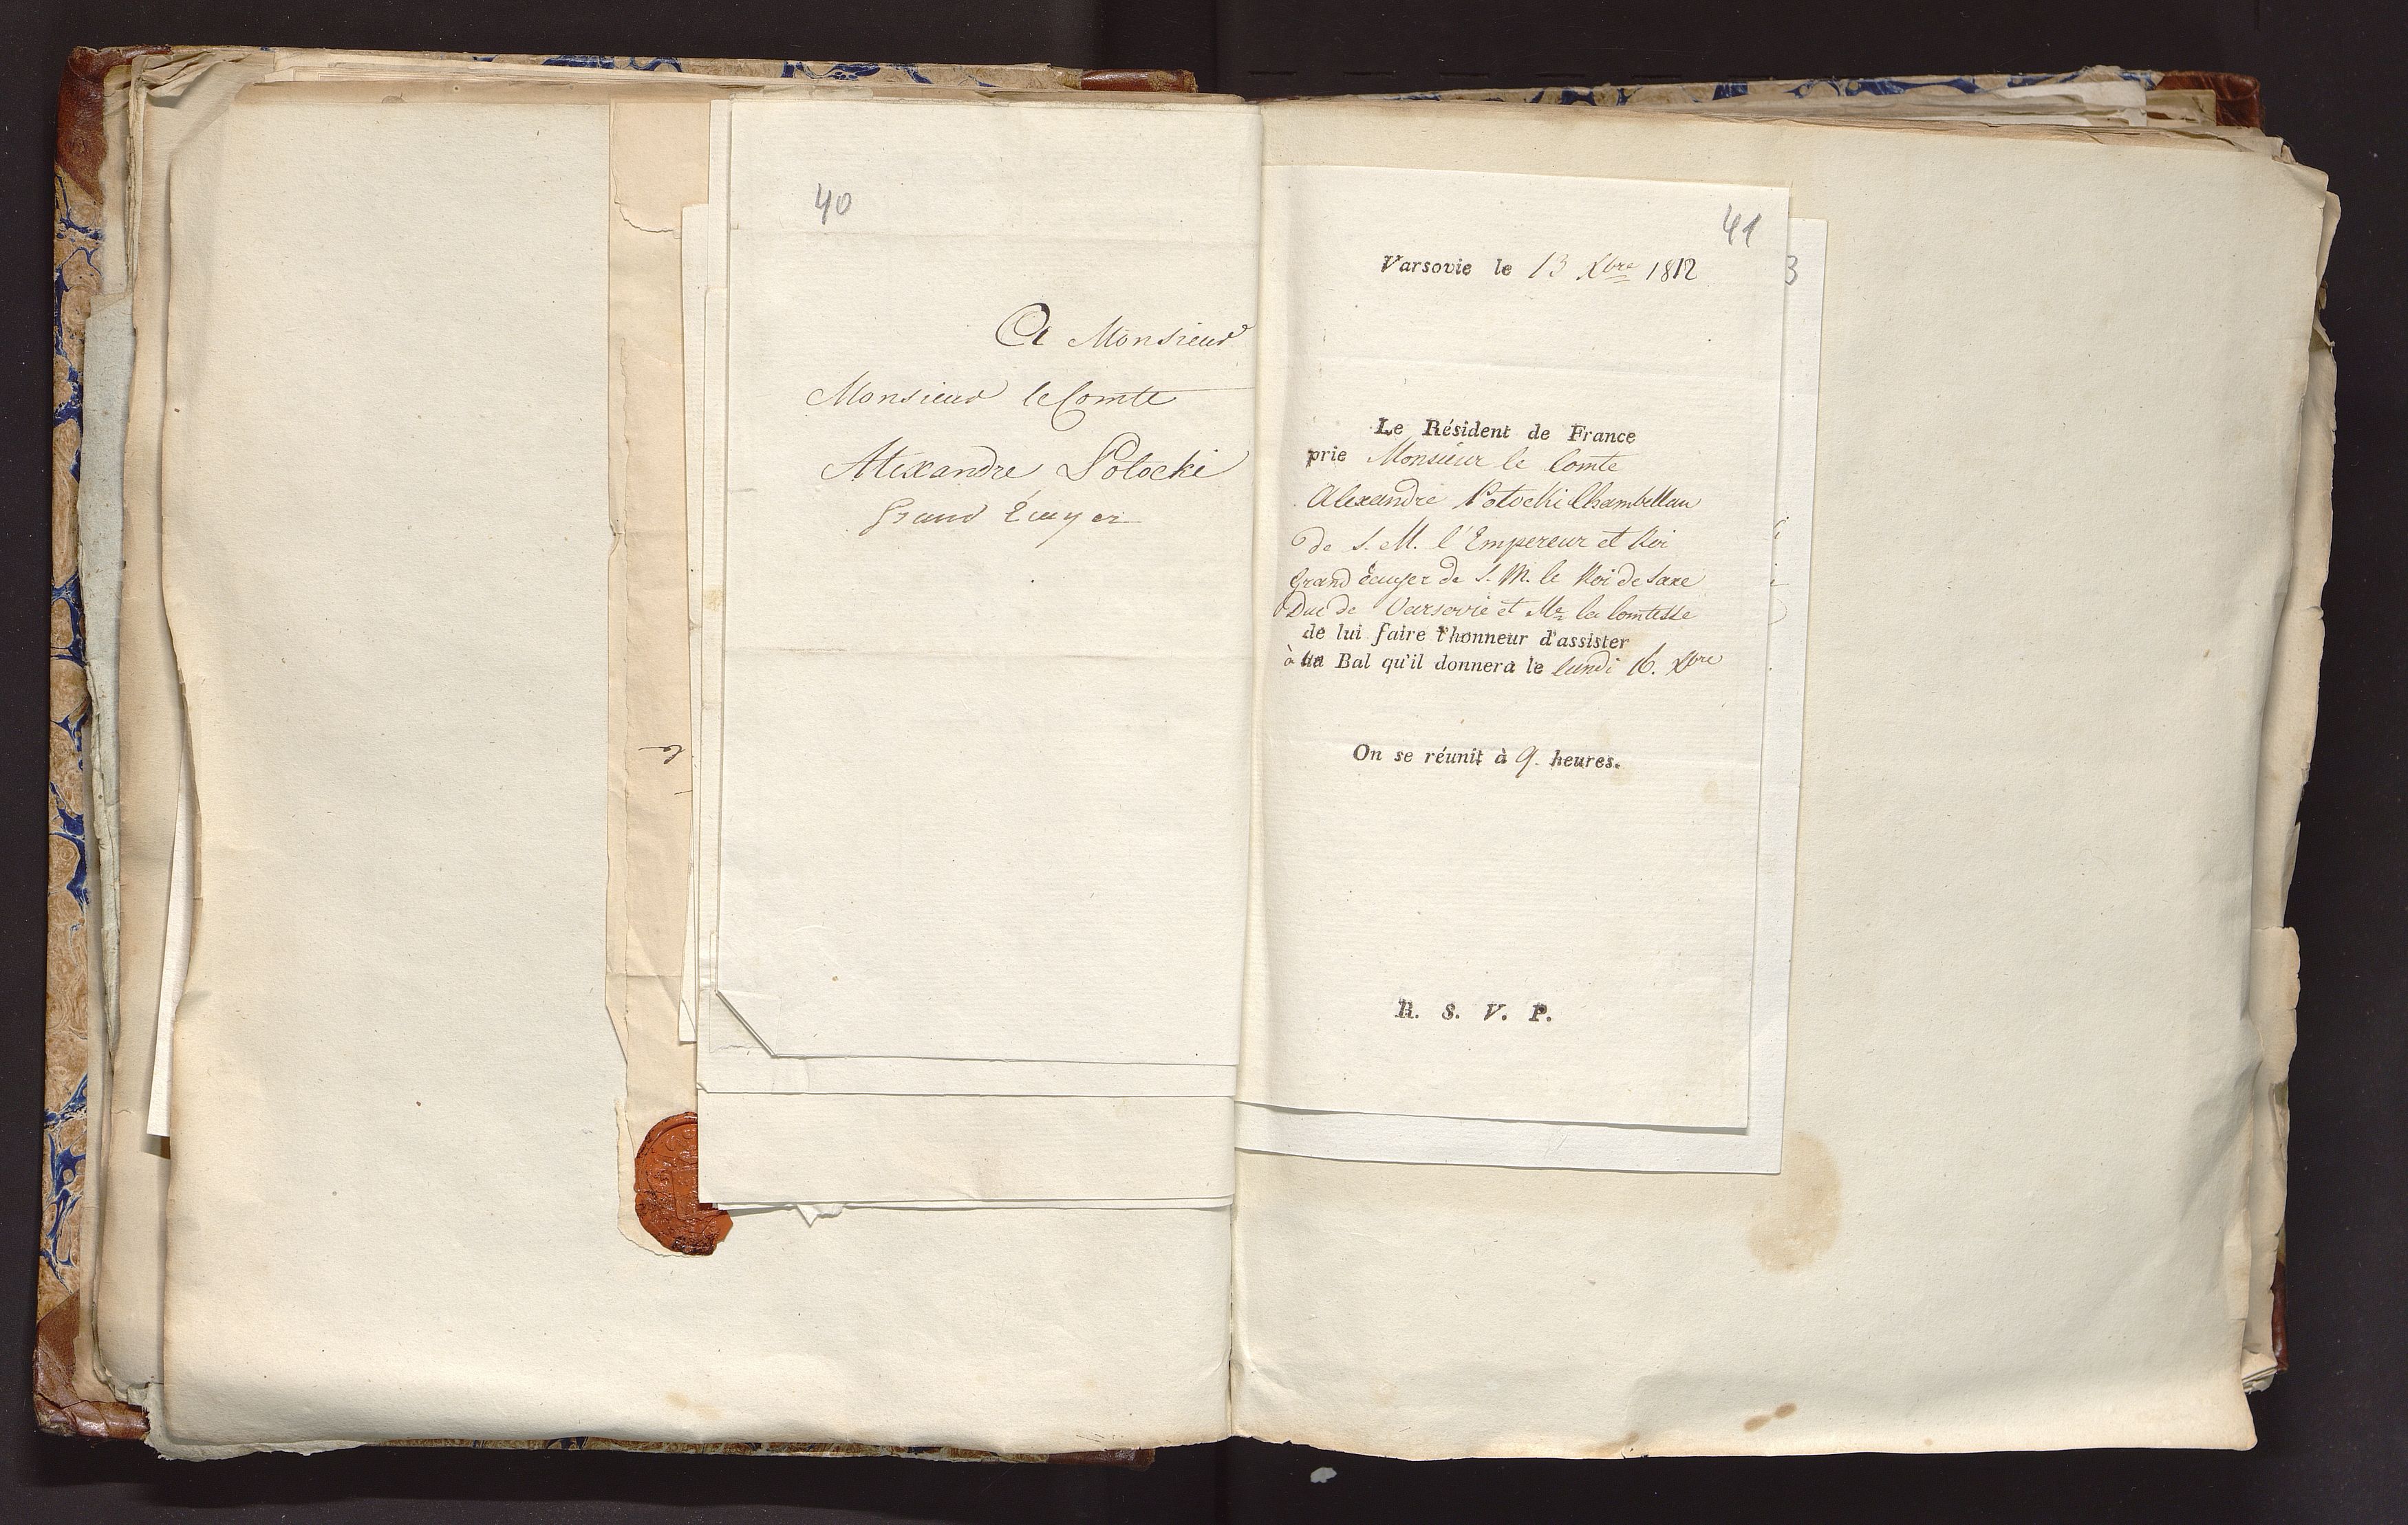 40
A Monsieur
Monsieur le Comte
Alexandre Potocki
Grand Ecuyer
41
Varsovie le 13 Xbre 1812
3
Le Résident de France
prie Monsieur le Comte
Alexandre Potocki Chambellan
de S. M. l'Empereur et Roi
Grand écuyer de S. M. le Roi de Saxe
Duc de Varsovie et Me la Comtesse
de lui faire l'honneur d'assister
à un Bal qu'il donnera le lundi 16. Xbre
On se réunit à 9. heures.
R. S. V. P.